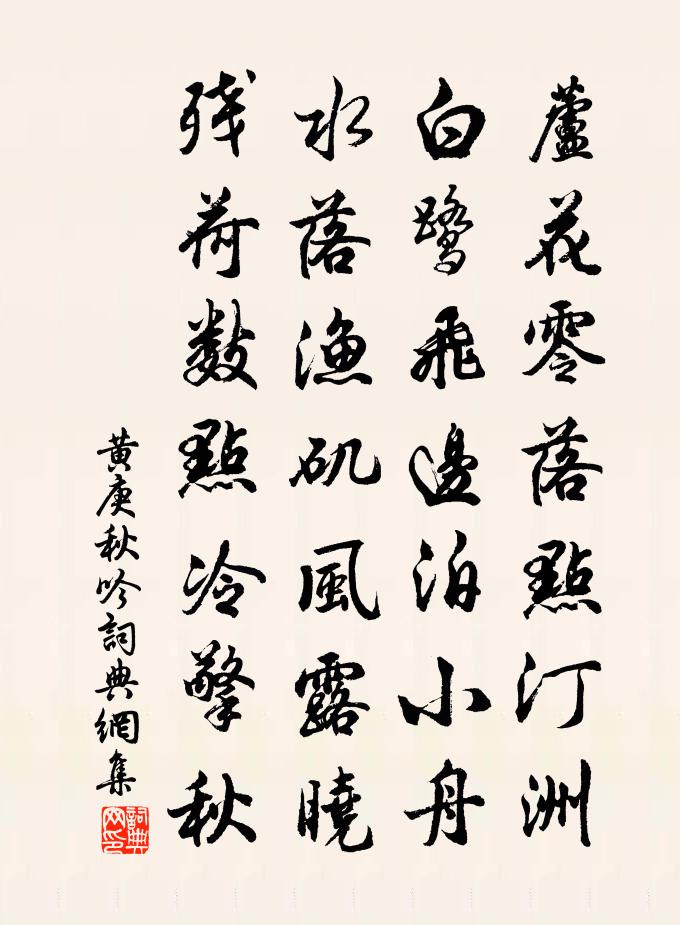 蘆花零落點汀洲
白鷺飛邊泊小舟
水落漁矶風露曉
残荷数點冷擎秋
黄庚秋吟詞典網集
詞典网印